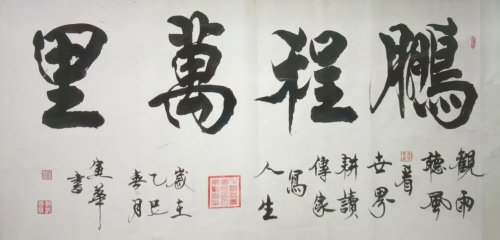 鵬程萬里
觀雨
聽風
看
世界
耕讀
傳家
寫
人生
歲在
乙巳
春月
書